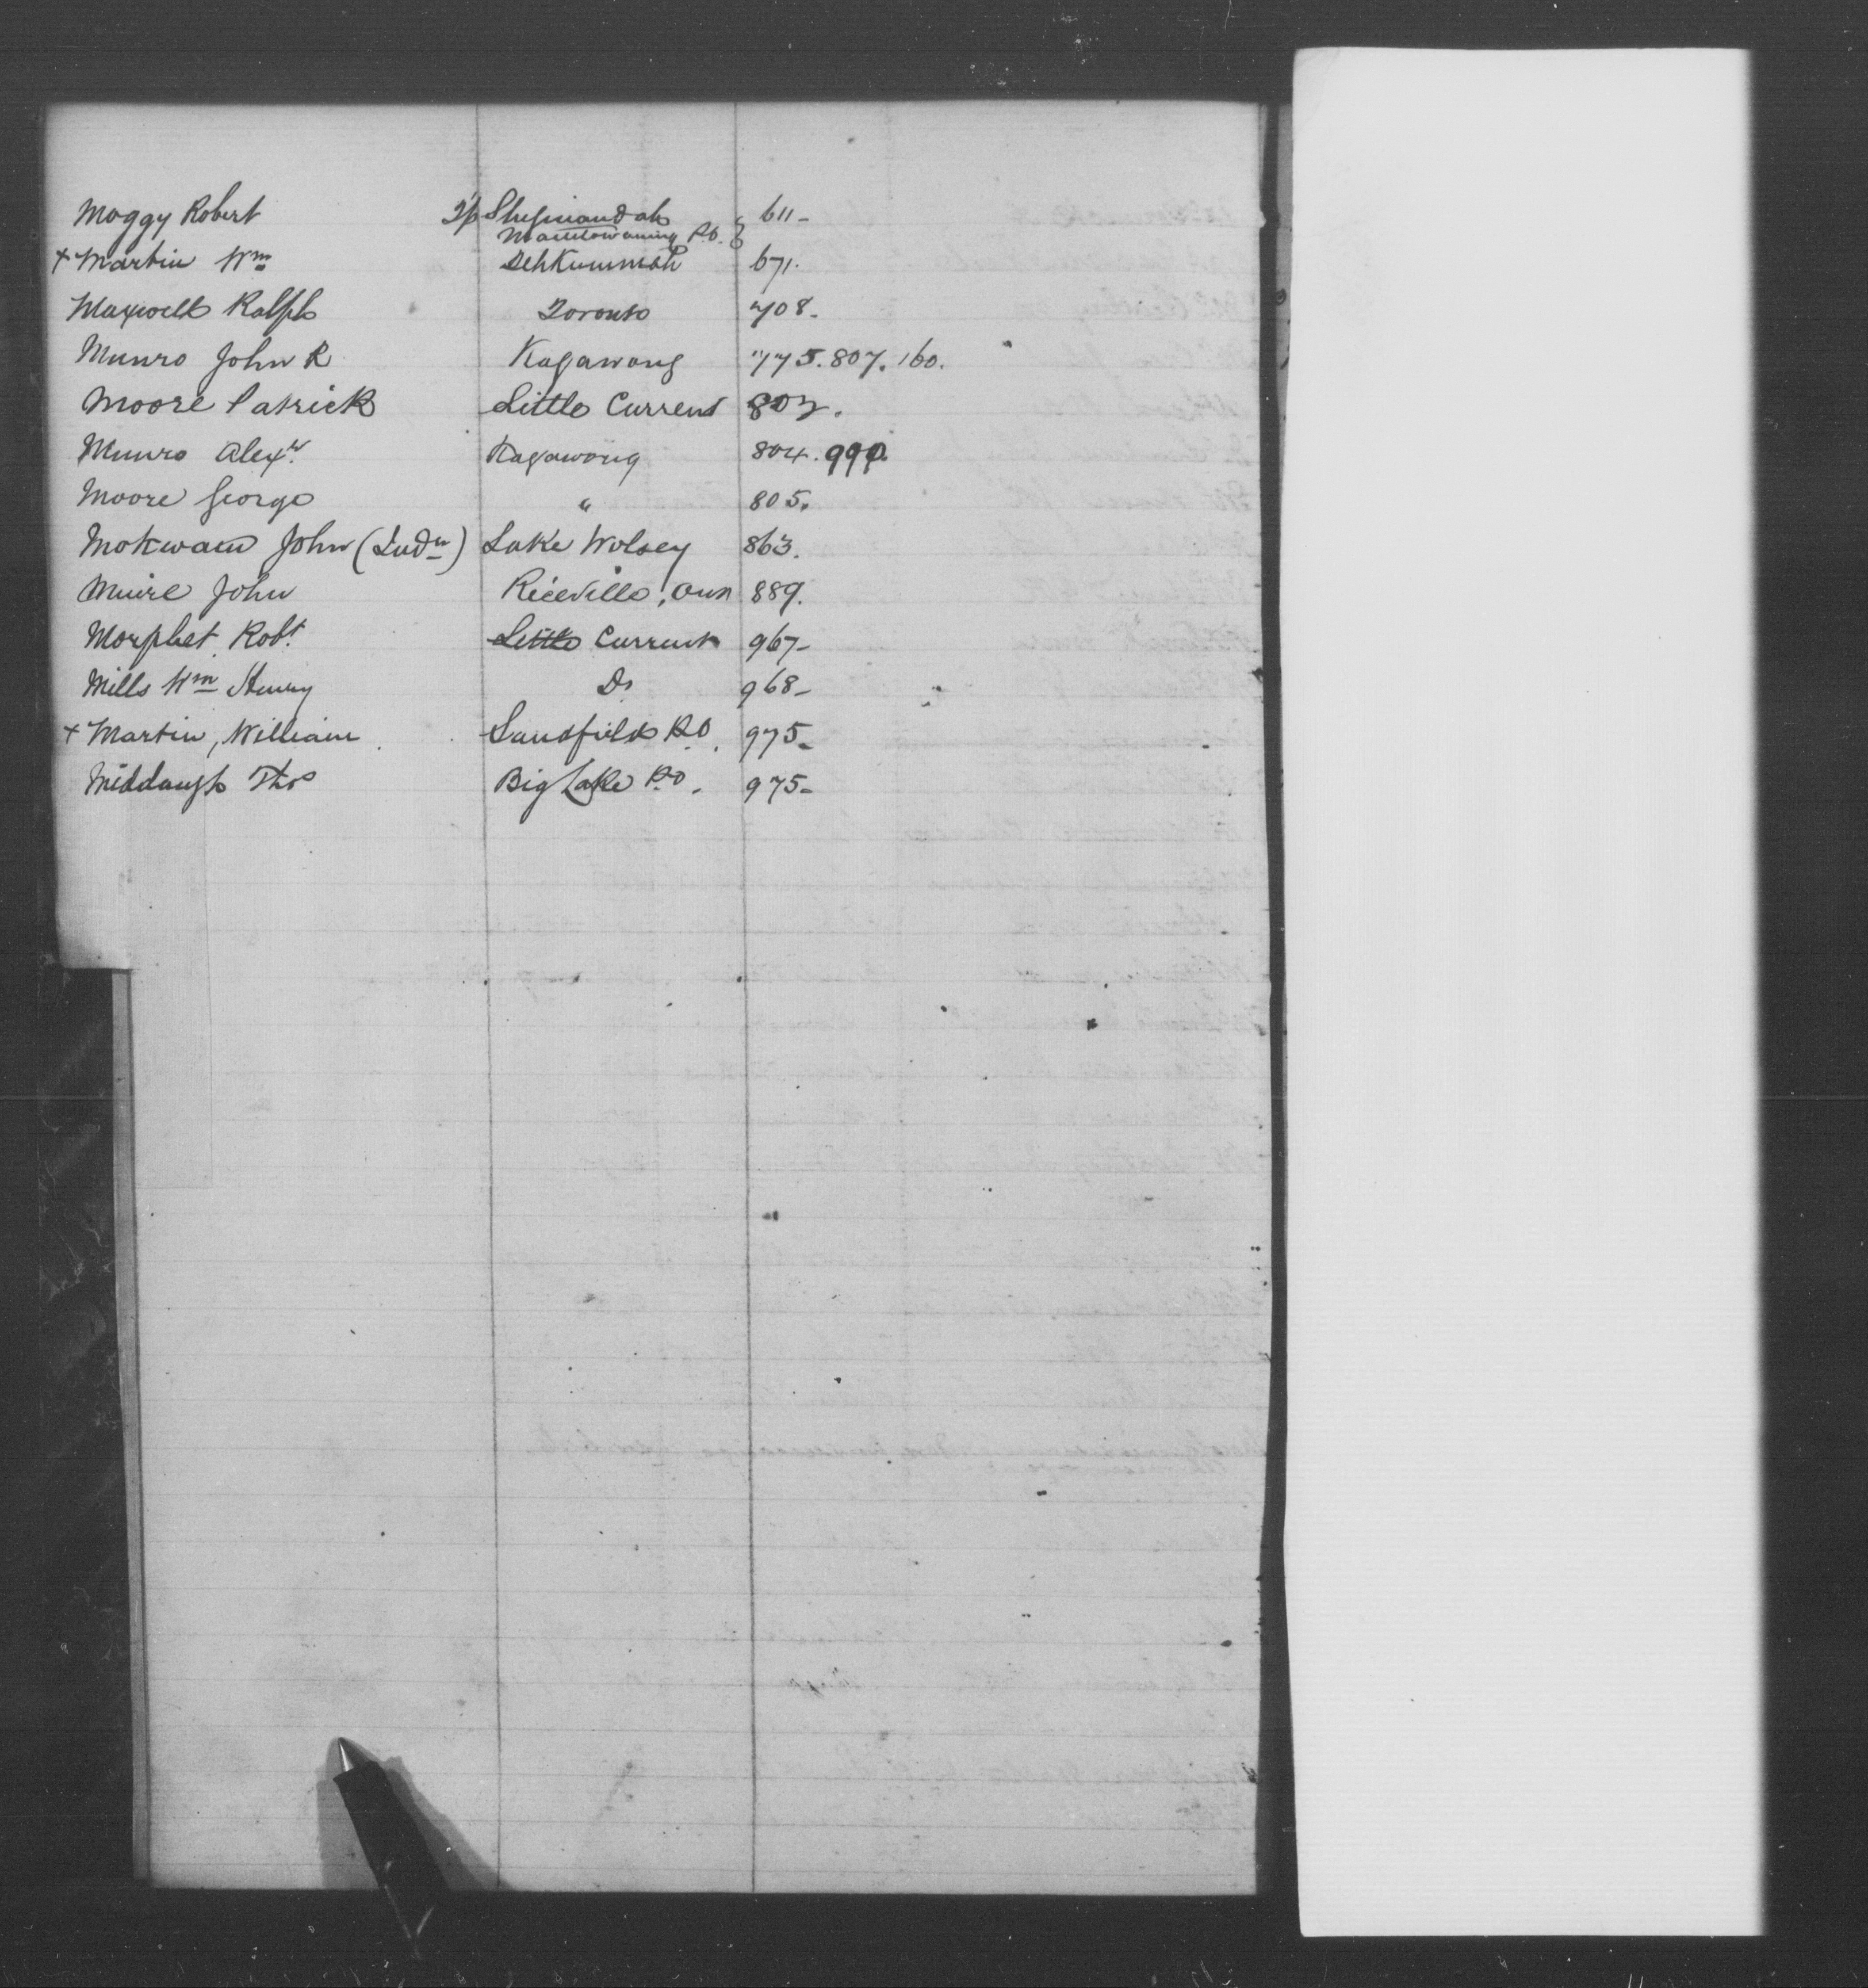 Moggy Robert Tp Shequiandah 611-
Manitowaning P.O.
+ Martin Wm Tehkummah 671.
Maxwell Ralph Toronto 708-
Munro John R Kagawong 775. 807. 160.
Moore Patrick Little Current 802.
Munro Alexr. Kagawong 804. 990.
Moore George " 805.
Mokwam John (Indn) Lake Wolsey 863.
Muire John Riceville, Ont 889.
Morphet Robt. Little Current 967-
Mills Wm Henry Do 968-
+ Martin, William Sandfield P.O. 975-
Middaugh Thos Big Lake P.O. 975-